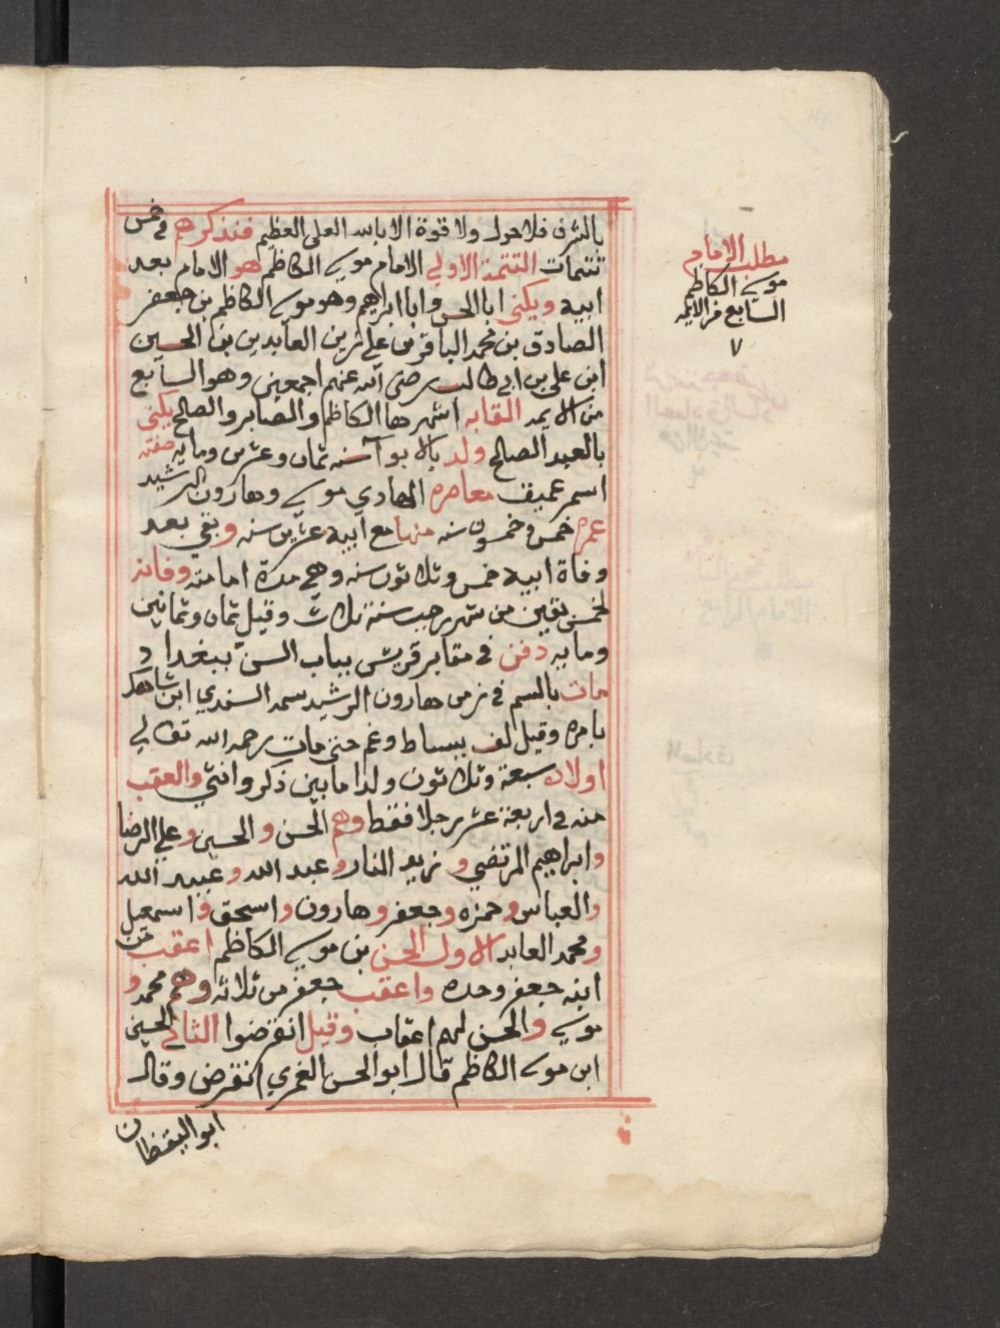 بالشرف فلا حول ولا قوة الا بالله العلي العظيم فنذكرهم في خمس
تتمات التتمة الاولي الامام موسى الكاظم هو الامام بعد
ابيه ويكنى ابا الحسن وابا ابراهيم وهو موسى الكاظم بن جعفر
الصادق بن محمد الباقر بن علي زين العابدين بن الحسين
ابن علي بن ابي طالب رضي الله عنهم اجمعين وهو السابع
من الايمه القابه اشهرها الكاظم والصابر والصالح يكنى
بالعبد الصالح ولد بالابوآ سنه ثمان وعشرين ومايه صفته
اسمر عميق معاصره الهادي موسى وهارون الرشيد
عمره خمس وخمسون سنه منها مع ابيه عشرين سنه وبقي بعد
وفاة ابيه خمس وثلاثون سنه وهي مدة امامته وفاته
لخمس بقين من شهر رجب سنة ثلاث وقيل ثمان وثمانين
ومايه دفن في مقابر قريش بباب التبن ببغداد
مات بالسم في زمن هارون الرشيد سمه السندي ابن شاهك
بامره وقيل لف ببساط وغم حتى مات رحمه الله تعالي
اولاده سبعة وثلاثون ولدا مابين ذكر وانثي والعقب
منه في اربعة عشر رجلا فقط وهم الحسن والحسين وعلي الرضا
وابراهيم المرتضي وزيد النار وعبد الله وعبيد الله
والعباس وحمزه وجعفر وهارون واسحق واسمعيل
ومحمد العابد الاول الحسن بن موسى الكاظم اعقب من
ابنه جعفر وحده واعقب جعفر من ثلاثه وهم محمد و
موسى والحسن لهم اعقاب وقيل انقرضوا الثاني الحسين
ابن موسى الكاظم قال ابو الحسن العمري انقرض وقال
ابو اليقظان
مطلب الامام
موسى الكاظم
السابع من الايمه
٧